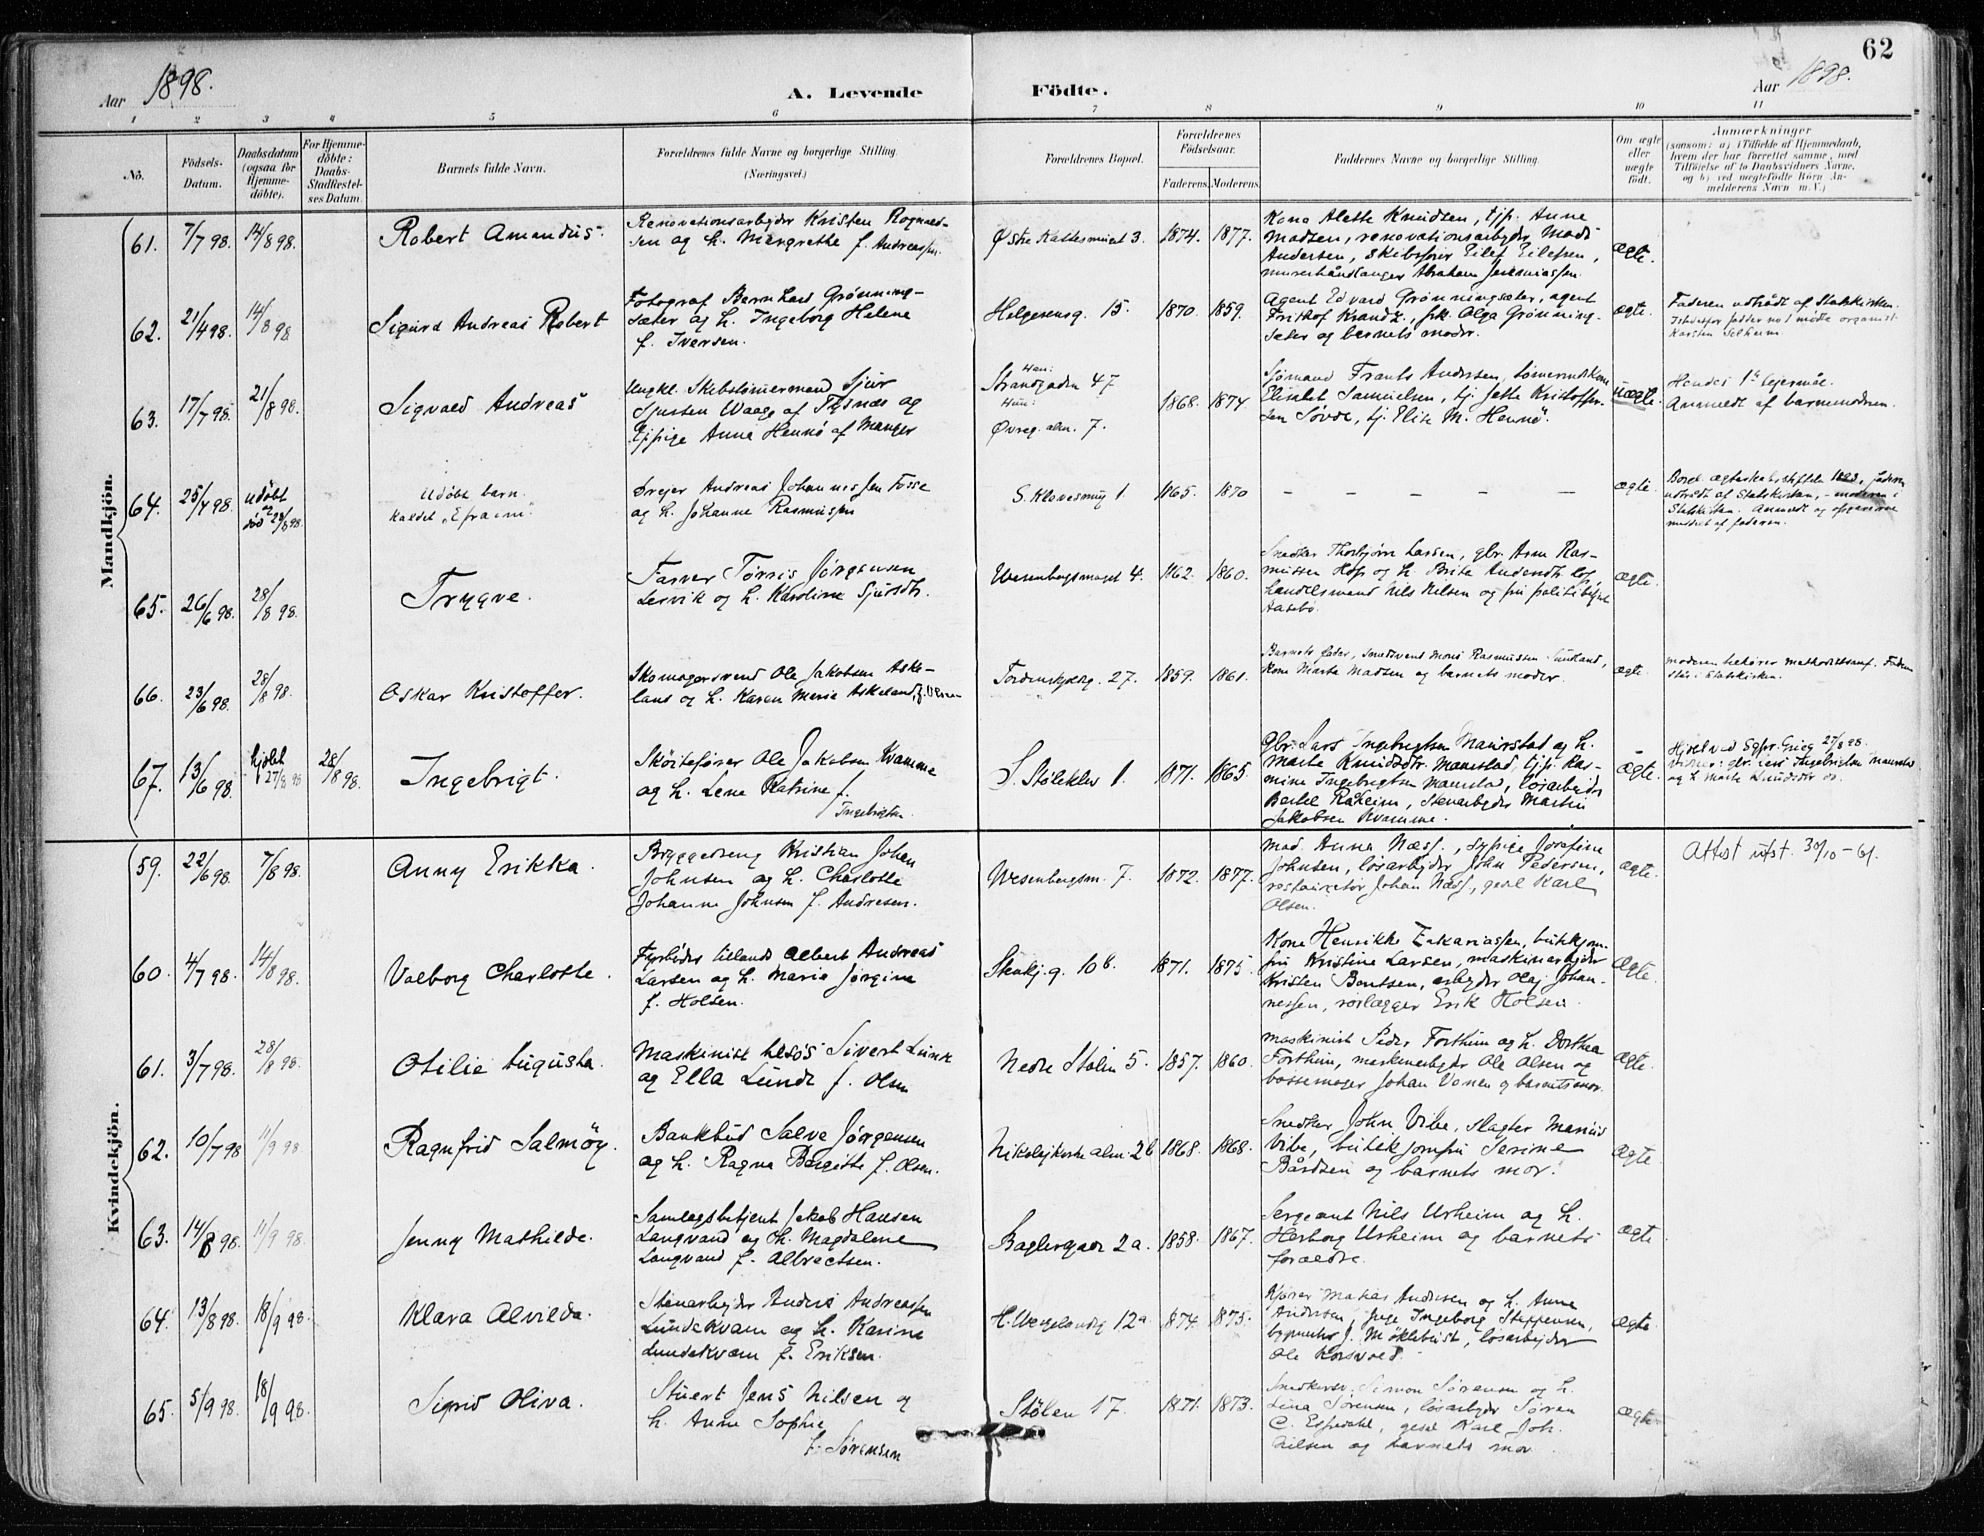 62
Aar 1898.
A. Levende Födte.
Aar 1898.
1 2 3 4 5 6 7 8 9 10 11
No.
Födsels-
Datum.
Daabsdatum
(ogsaa for
Hjemme-
döbte).
For Hjemme-
döbte:
Daabs-
Stadfæstel-
ses Datum.
Barnets fulde Navn.
Forældrenes fulde Navne og borgerlige Stilling.
(Næringsvei.)
Forældrenes Bopæl.
Forældrenes
Födselsaar.
Faderens. Moderens.
Faddernes Navne og borgerlige Stilling.
Om ægte
eller
uægte
født.
Anmærkninger
(saasom: a) i Tilfælde af Hjemmedaab,
hvem der har forrettet samme, med
Tilföielse af to Daabsvidners Navne,
og b) ved uægtefödte Börn An-
melderens Navn m. V.)
Mandkjön.
61. 7/7 98. 14/8 98. Robert Amandus.
Renovationsarbejder Kristen Rognald-
sen og h. Margrethe f. Andreassen.
Østre Kattesmuet 3. 1874. 1877.
Kona Alette Knudsen, tjp. Anne
Madsen, renovationsarbejder Mads
Andersen, Skibsfører Eilef Eilefsen,
murerhåndlanger Abraham Jeremiassen.
ægte.
62. 21/4 98. 14/8 98 Sigurd Andreas Robert
Fotograf Bernhard Grønning-
sæter og h. Ingeborg Helene
f. Iversen.
Helgesensg. 15. 1870. 1859.
Agent Edvard Grønningsæter, agent
Frithof Krantz, frk. Olga Grønning-
sæter og barnets moder.
ægte.
Faderen udtrådt af Statskirken.
Istedetfor fadder no 1 mødte organist
Karsten Solheim.
63. 17/7 98. 21/8 98. Sigvald Andreas
Ungkl. Skibstømmermand Sjur
Sjursen Waage af Tysnæs og
Tjpige Anna Hennø af Manger
Han:
Strandgaden 47
Hun:
Øvreg. alm. 7.
1868. 1874.
Sjømand Frants Andersen, tømmermdskone
Elisabet Samuelsen, tj. Jette Kristoffer-
sen Søvde, tj. Elise M. Hennø.
uægte.
Hendes 1ste lejermål.
Anmeldt af barnemoderen.
64. 25/4 98. Udøbt
død 28/5 98.
Udøbt barn.
kaldet "Efraim".
Drejer Andreas Johannessen Fosse
og h. Johanne Rasmussen
S. Klovesmug 1. 1865. 1870
– – – – – –
ægte.
Borgl. ægteskab stiftet faderen
udtrådt af Statskirken, – moderen i
Statskirken. Anmeldt og opgaverne
meddelt af faderen.
65. 26/6 98. 28/8 98. Trygve.
Farver Tørris Jørgensen
Lervik og h. Karoline Sjursdtr.
Wesenbergsmuget 4. 1862. 1860.
Snedker Thorbjørn Larsen, gbr. Arne Ras-
mussen og h. Brita
Landhandelsmand Nils Nilsen og fru politibetjent
Aasebø.
ægte.
66. 23/6 98. 28/8 98. Oskar Kristoffer.
Skomagersvend Ole Jakobsen Aske-
land og h. Karen Marie Askeland, f. Olsen
Tordenskjoldsg. 27. 1859. 1861.
Barnets fader, Smedsvend Mons Rasmussen
Kone Marta Madsen og barnets moder.
ægte.
Moderen tilhører methodistsamf. Faderen
står i Statskirken.
67. 13/6 98. hjdøbt 27/8 98 28/8 98. Ingebrigt.
Skøitefører Ole Jakobsen Kvamme
og h. Lene Katrine f.
Ingebrigtsen.
S. Støleklev 1. 1871. 1865.
Gbr. Lars Ingebrigtsen Maurstad og h.
Marte Knudsdtr. Maurstad, tjp. Ras-
mine Ingebrigtsen Maurstad, løsarbejder
Bertel Raheim, Stenarbejder Martin
Jakobsen Kvamme.
ægte.
Hjdøbt ved Sgpr. Grieg 27/8 98.
Vidner: gbr. Lars Ingebrigtsen Maurstad
og h. Marte Knudsdtr. do.
Kvindekjön.
59. 22/6 98. 7/8 98. Anny Erikka.
Bryggedreng Kristian Johan
Johnsen og h. Charlotte
Johanne Johnsen f. Andresen.
Wesenbergsm. 7. 1872. 1877.
Mad. Anna Næss, sypige Josefine
Johnsen, løsarbejder John Pedersen,
restauratør Johan Næss, gesel Karl
Olsen.
ægte.
Attst utst. 30/10–61.
60. 4/7 98. 14/8 98. Valborg Charlotte.
Fyrbøder tillands Albert Andreas
Larsen og h. Maria Jørgine
f. Holsen.
Stenkj.g. 10b. 1871. 1875.
Kone Henrikke Zakariassen, butikjom-
fru Kristine Larsen, maskinarbejder
Kristen Bentsen, arbejder Olaj Johan-
nessen, rørlægger Erik Holsen.
ægte.
61. 3/7 98. 28/8 98. Otilie Augusta.
Maskinist tilsøs Sivert Lund
og Ella Lunde f. Olsen
Nedre Stølen 5. 1857. 1860.
Maskinist Peder Forthun og h. Dorthea
Forthun, maskinarbejder Ole Olsen og
bøssemager Johan Vonen og barnets mor.
ægte.
62. 10/7 98 11/9 98 Ragnfrid Salmøy.
Bankbud Salve Jørgensen
og h. Ragna Bergitte f. Olsen.
Nikolajkirkealm. 2b 1868. 1868.
Snedker John Vibe, slagter Marius
Vibe, butikjomfru Serine
Bårdsen og barnets mor.
ægte
63. 14/8 98. 11/9 98. Jenny Mathilde.
Samlagsbetjent Jakob Hansen
Langvand og h. Magdalene
Langvand f. Albrectsen.
Baglergaden 2a. 1858. 1867.
Sergeant Nils Urheim og h.
Herborg Urheim og barnets
forældre.
ægte
64. 13/8 98. 18/9 98. Klara Alvilda.
Stenarbejder Anders Andreassen
Lundekvam og h. Karina
Lundekvam f. Eriksen.
H. Wergelandsg. 12a 1874. 1875.
Kjører Matias Andersen og h. Anne
Andersen, pige Ingeborg Steffensen,
bygmester J. Møklebust, løsarbejder
Ole Korsvold.
ægte
65. 5/9 98. 18/9 98. Sigrid Oliva.
Stuert Jens Nilsen og
h. Anne Sophie
f. Sørensen
Stølen 17. 1871. 1873.
Snedkersv. Simon Sørensen og h.
Lina Sørensen, løsarbejder Søren
C. Espedahl, gesel Karl Joh.
Nilsen og barnets mor.
ægte